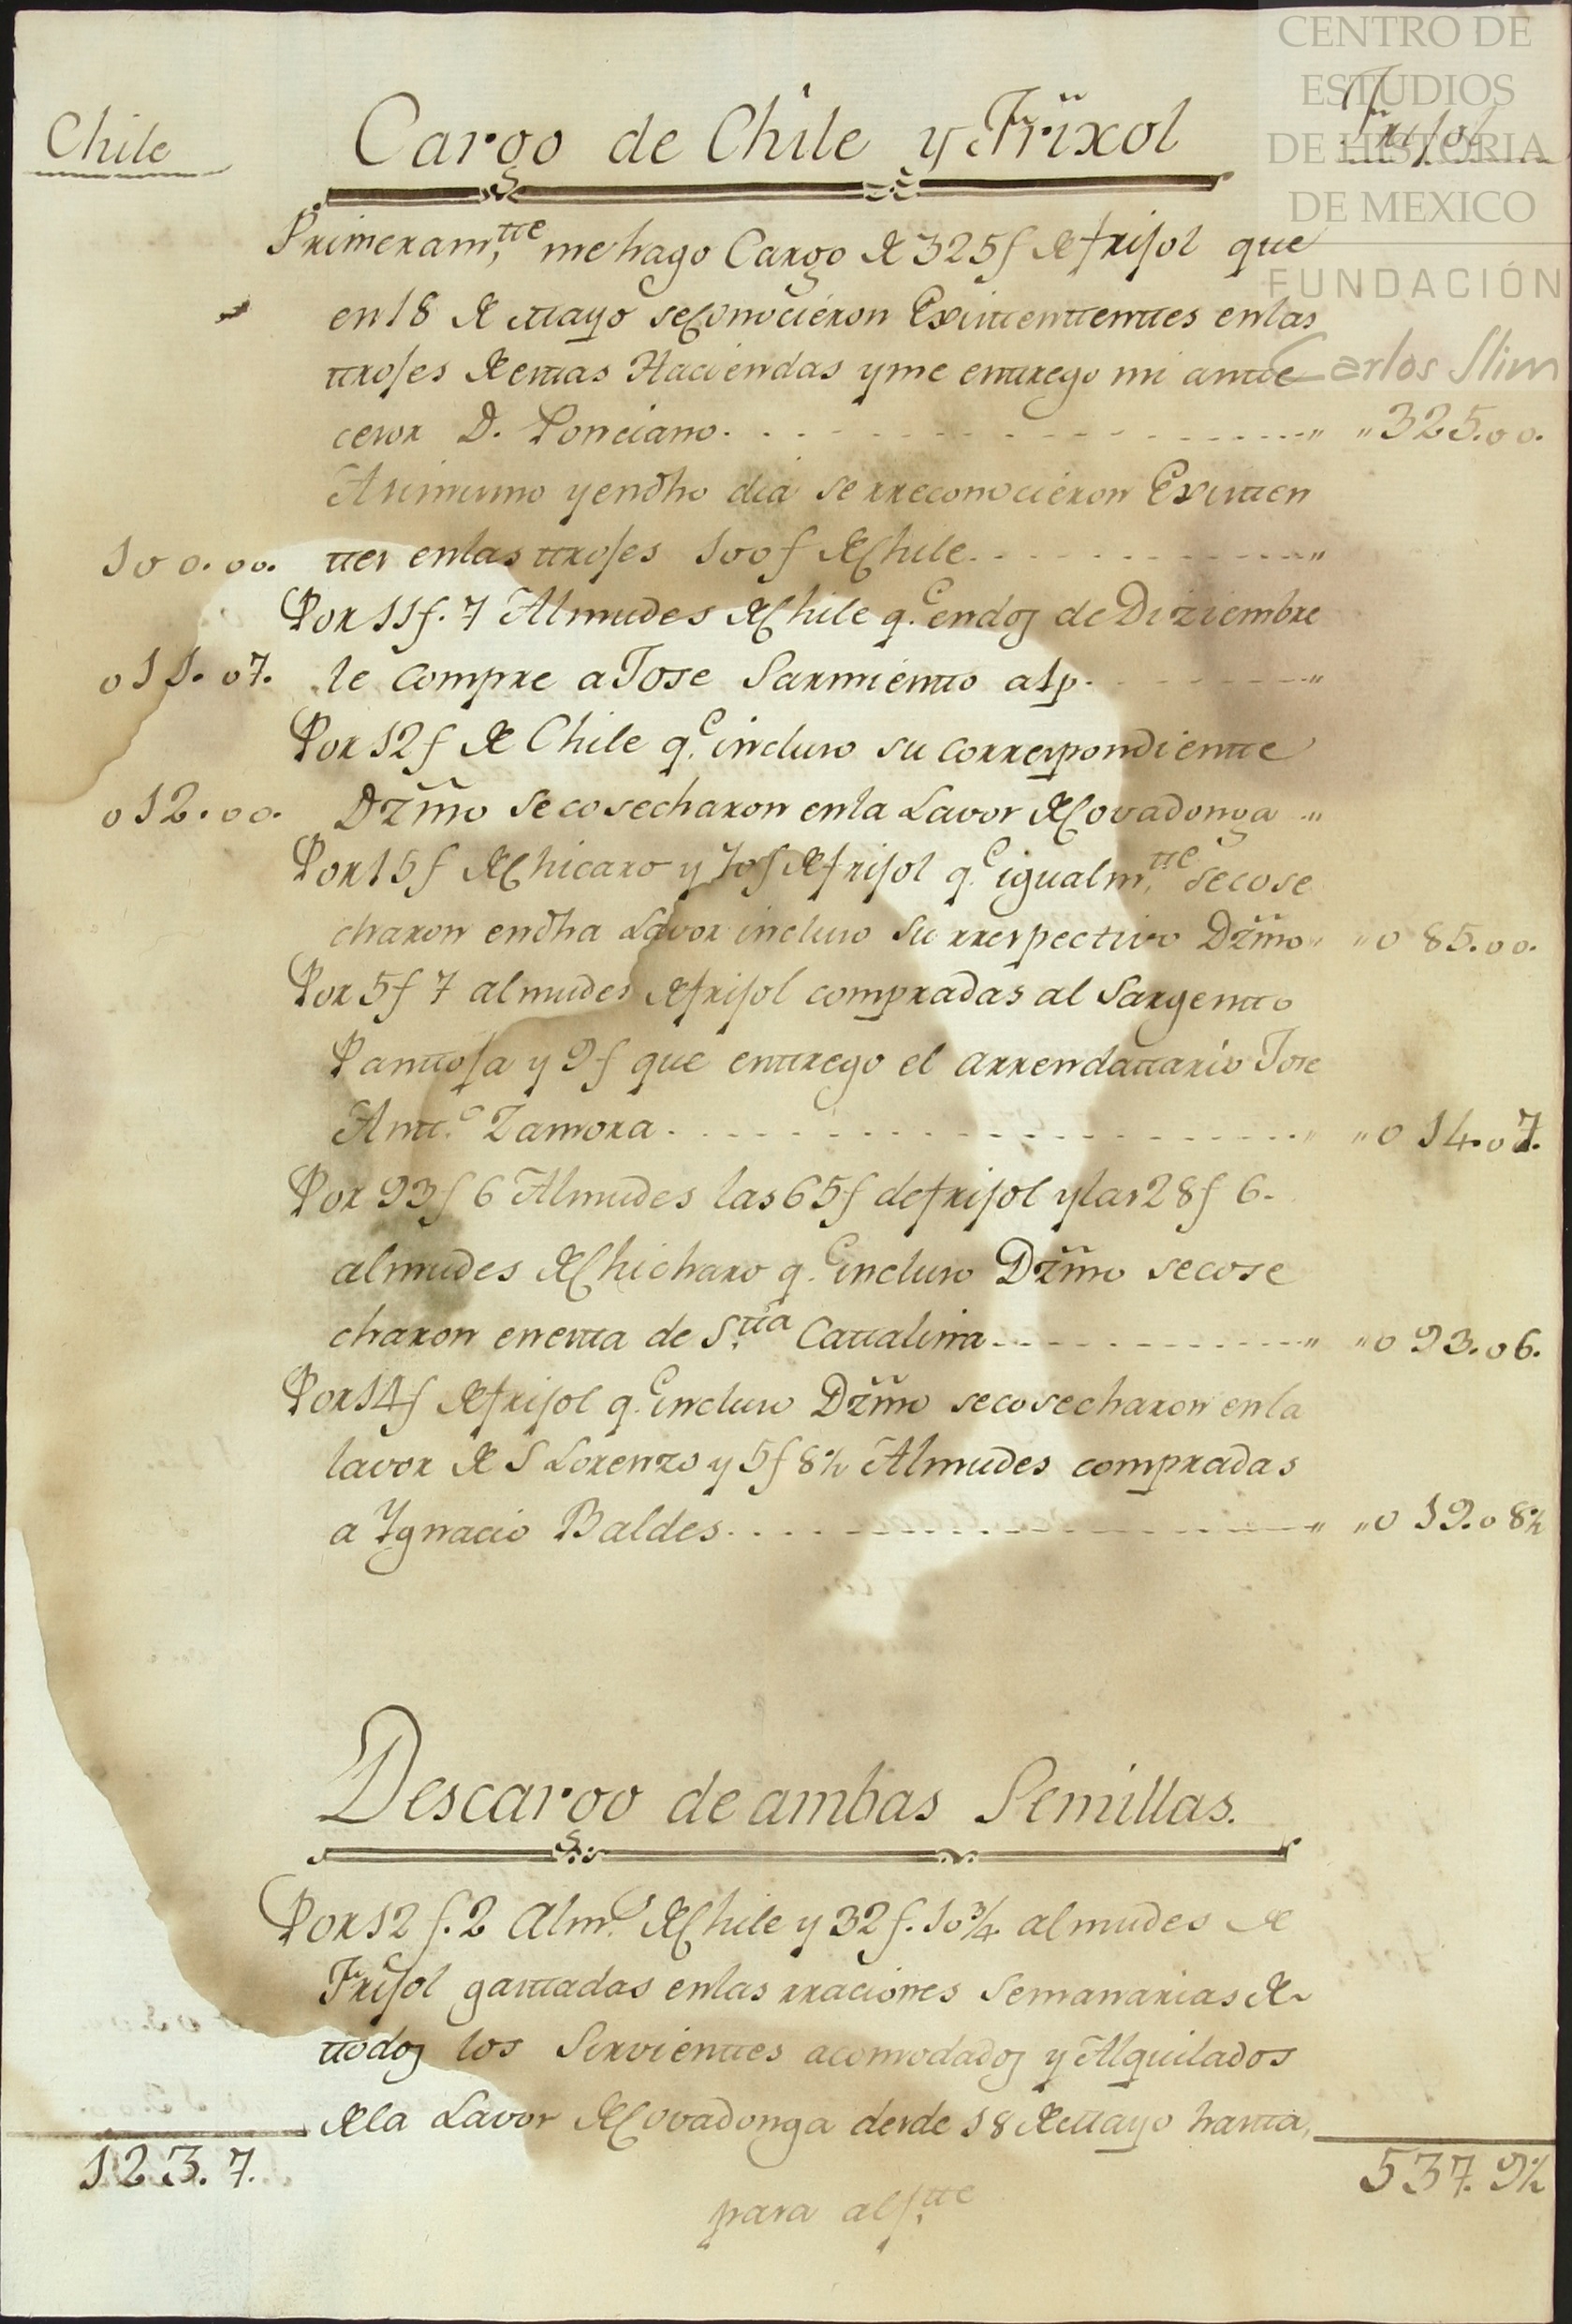 CENTRO DE
ESTUDIOS
DE HISTORIA
DE MEXICO
FUNDACIÓN
Carlos Slim
Chile
Cargo de Chile y Frixol
Frisol
Primeram.tte me hago Cargo de 325f de frisol que
en 18 de Mayo se Conocieron Existtenttes en las
ttroses de esttas Haciendas y me enttrego mi antte
cesor D. Ponciano. " " 325.00.
Asimismo y en dho dia se rreconocieron Existten
100.00. ttes en las ttroses 100f de Chile. "
Por 11f. 7 Almudes de Chile q.e en dos de Diziembre
011.07. le compre a Jose Sarmientto a 1p. "
Por 12f de Chile q.e incluso su correspondientte
012.00. Dzmo se cosecharon en la Lavor de Covadonga "
Por 15f de Chicaro y 70f de frisol q.e igualm.tte se cose
charon en dha Lavor incluso su rrespectivo Dzmo " " 0 85.00.
Por 5f 7 almudes de frisol compradas al Sargentto
Panttosa y 9f que enttrego el arrendattario Jose
Antt.o Zamora. " " 0 14.07.
Por 93f 6 Almudes las 65f de frisol y las 28f 6
almudes de Chicharo q.e incluso Dzmo se cose
charon en estta de S.tta Cattalina " " 0 93.06.
Por 14f de frisol q.e incluso Dzmo se cosecharon en la
lavor de S Lorenzo y 5f 8½ Almudes compradas
a Ygnacio Baldes. " " 0 19.08½
Descargo de ambas Semillas.
Por 12f. 2 Alm.s de Chile y 32f. 10¾ almudes de
Frisol gasttadas en las rraciones Semanarias de
ttodos los Sirvienttes acomodados y Alquilados
de la Lavor de Covadonga desde 18 de Mayo hastta
123.7. 537.9½
pasa al f.tte